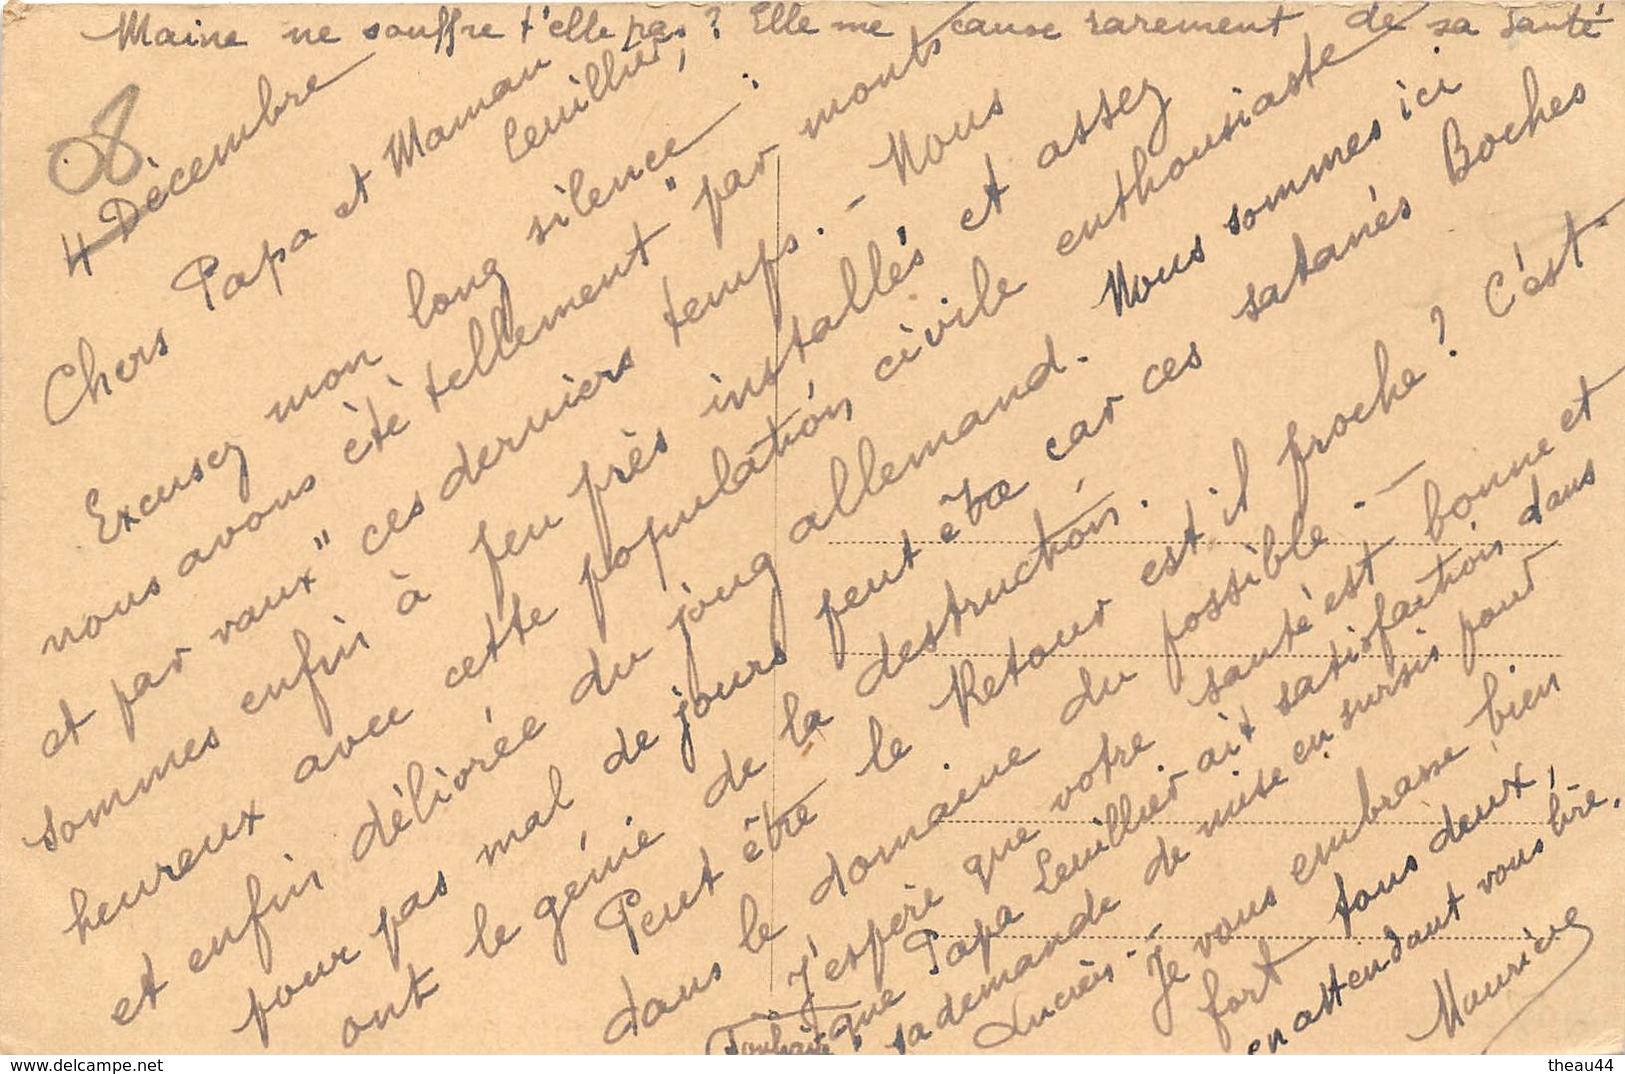 Maine ne souffre t'elle pas ? Elle me cause rarement de sa santé
08
4 Décembre
Chers Papa et Maman
Leuillier,
Excusez mon long silence :
nous avons étè tellement "par monts
et par vaux" ces derniers temps. - Nous
sommes enfin à peu près installés et assez
heureux avec cette population civile enthousiaste
et enfin délivrée du joug allemand. Nous sommes ici
pour pas mal de jours peut être car ces satanés Boches
ont le génie de la destruction.
Peut être le Retour est il proche ? C'est
dans le domaine du possible. -
J'espère que votre santé est bonne et
que Papa Leuillier ait satisfaction dans
sa demande de mise en sursis pour
Je vous embrasse bien
fort tous deux,
en attendant vous lire.
Maurice
theau44